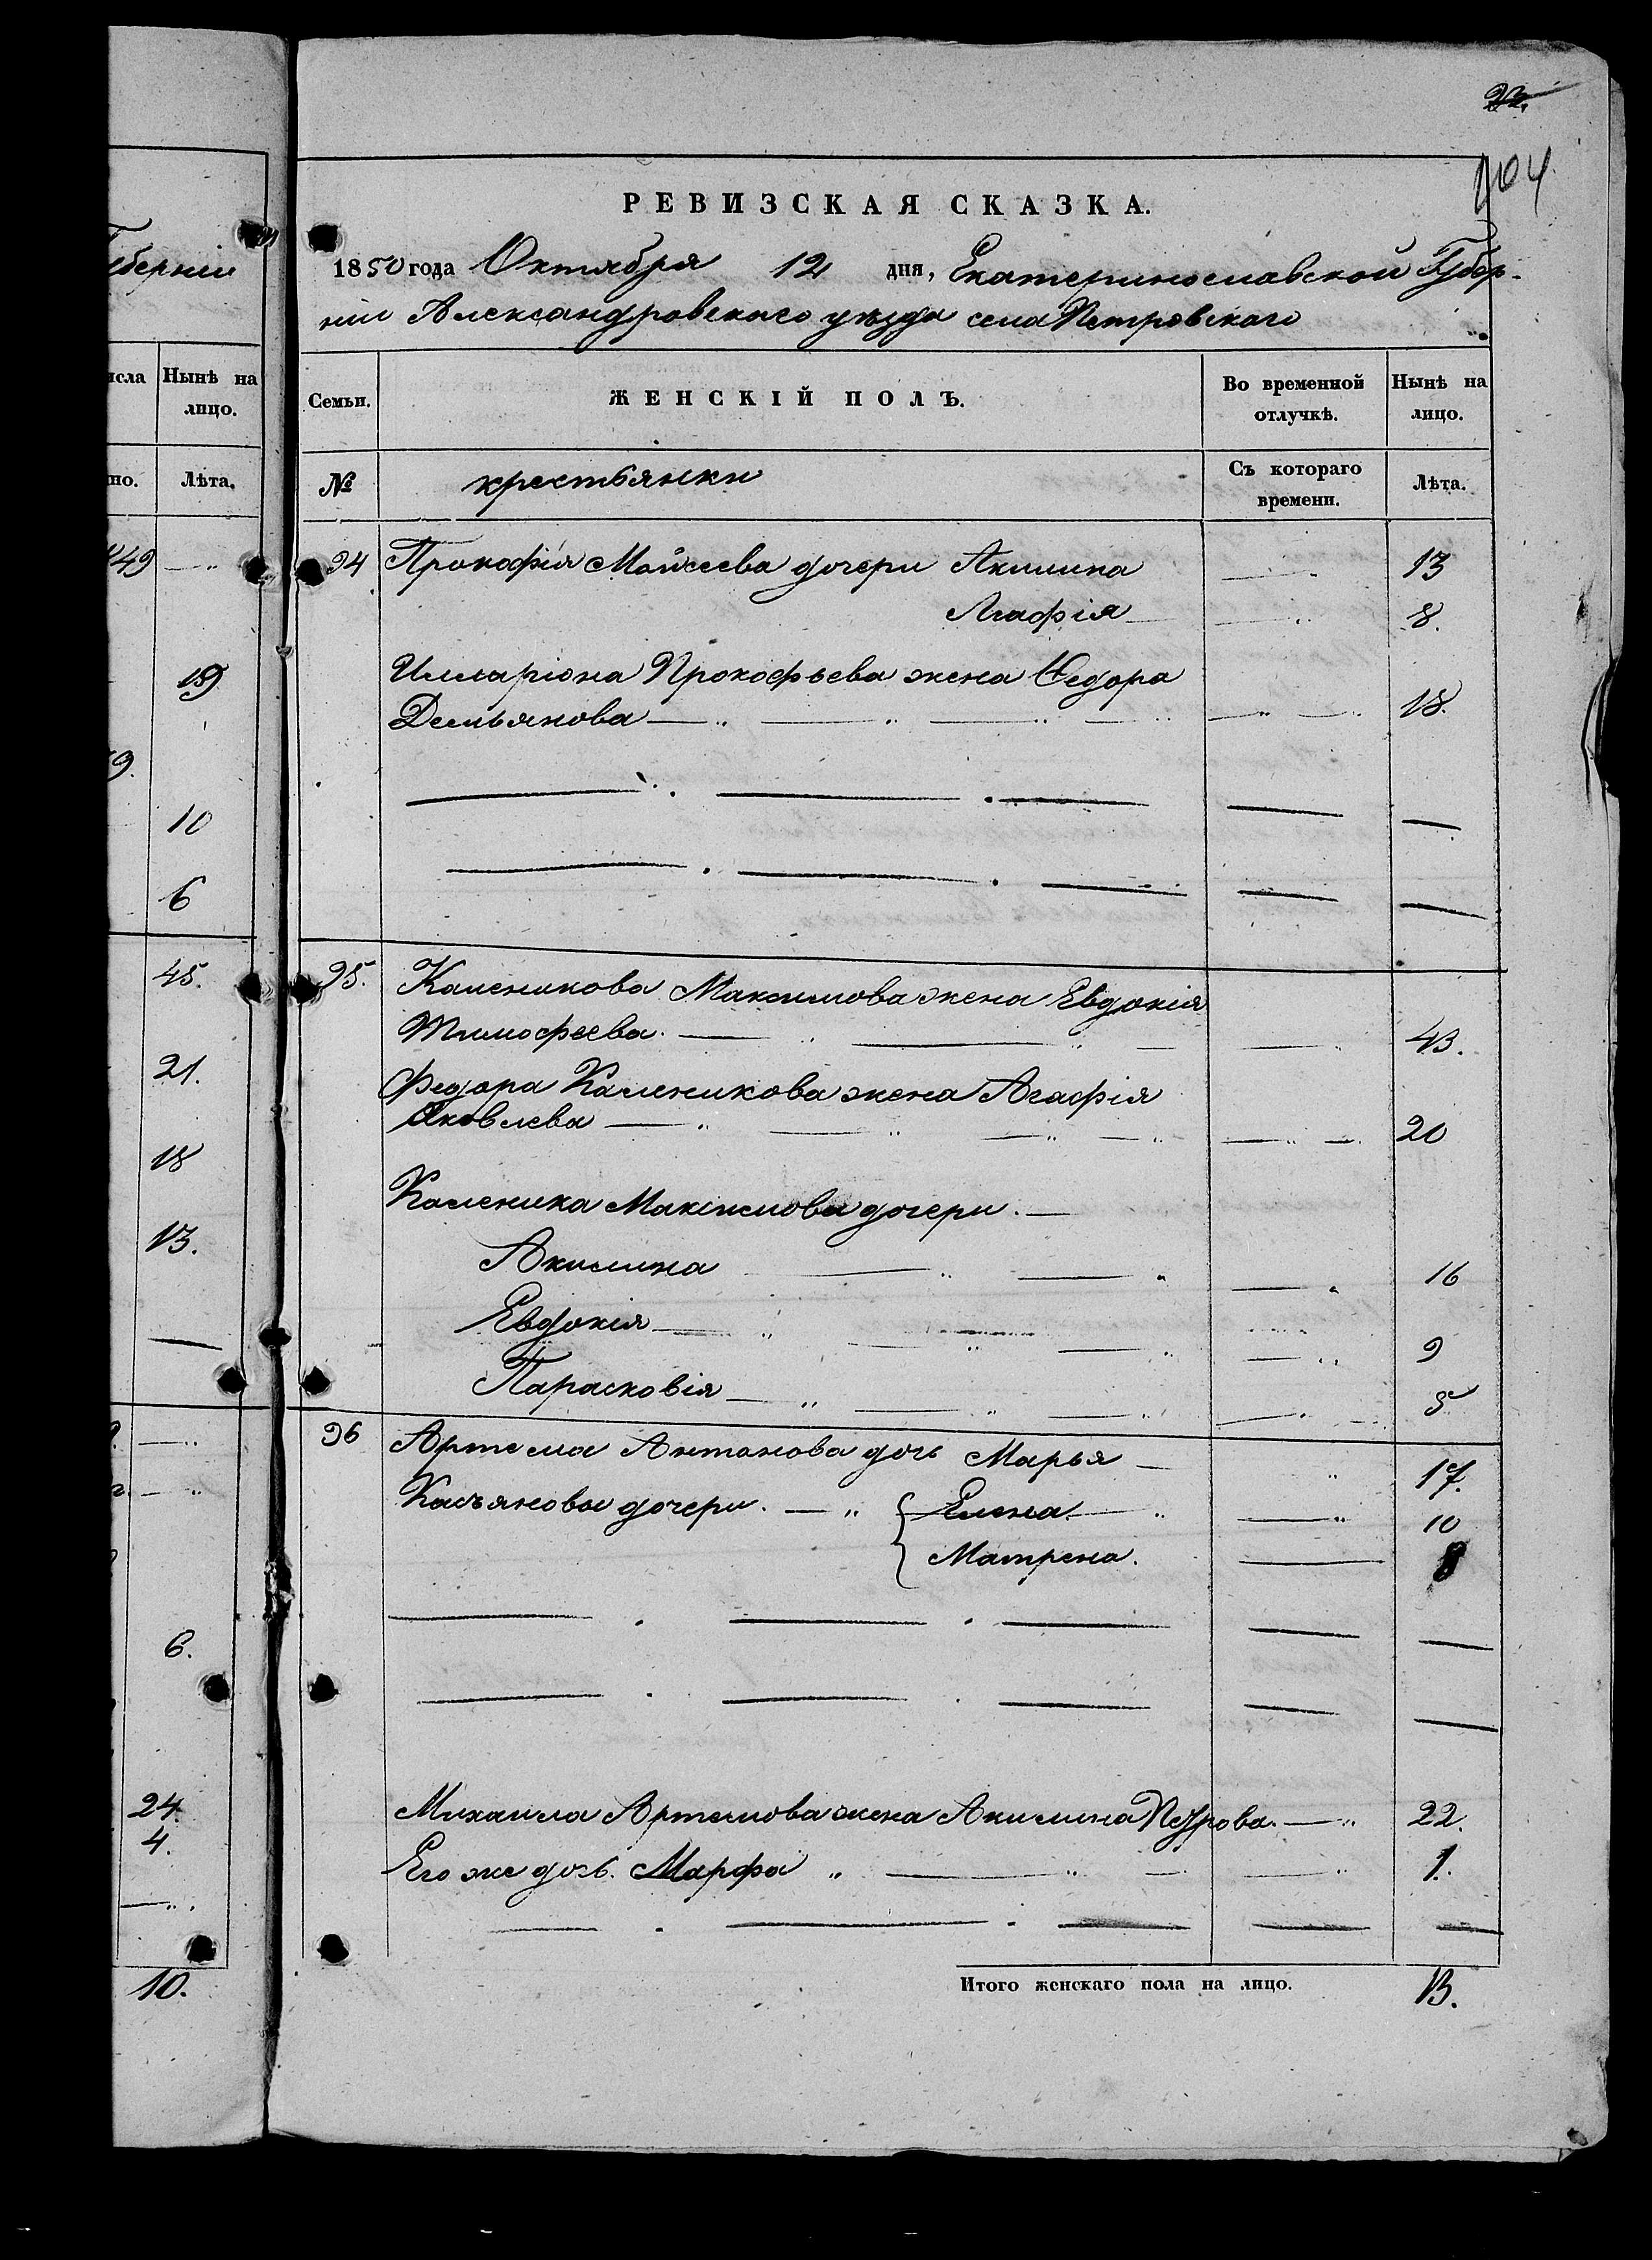 23.
104
РЕВИЗСКАЯ СКАЗКА.
1850 года Октября 12 дня, Екатеринославской Губер-
ніи Александровскаго уѣзда села Петровскаго
Семьи.
ЖЕНСКІЙ ПОЛЪ.
Во временной отлучкѣ.
Нынѣ на лицо.
№
крестьянки
Съ котораго времени.
Лѣта.
94 Прокофія Моѵсеева дочери Акилина 13
Агафія 8.
Илларіона Прокофьева жена Ѳедора
Демьянова 18.
95. Каленикова Максимова жена Евдокія
Тимофеева. 43.
Федора Каленикова жена Агафія
Яковлева 20
Каленика Максимова дочери.
Акилина 16
Евдокія 9
Парасковія 5
96 Артема Антонова дочь Марья 17.
Касьяновы дочери. Елена 10
Матрена. 8
Михаила Артемова жена Акилина Петрова. 22.
Его же дочь. Марфа 1.
Итого женскаго пола на лицо. 13.
уберніи
исла
Нынѣ на лицо.
но.
Лѣта.
49
19
9.
10
6
45.
21.
18
13.
6.
24.
4.
10.